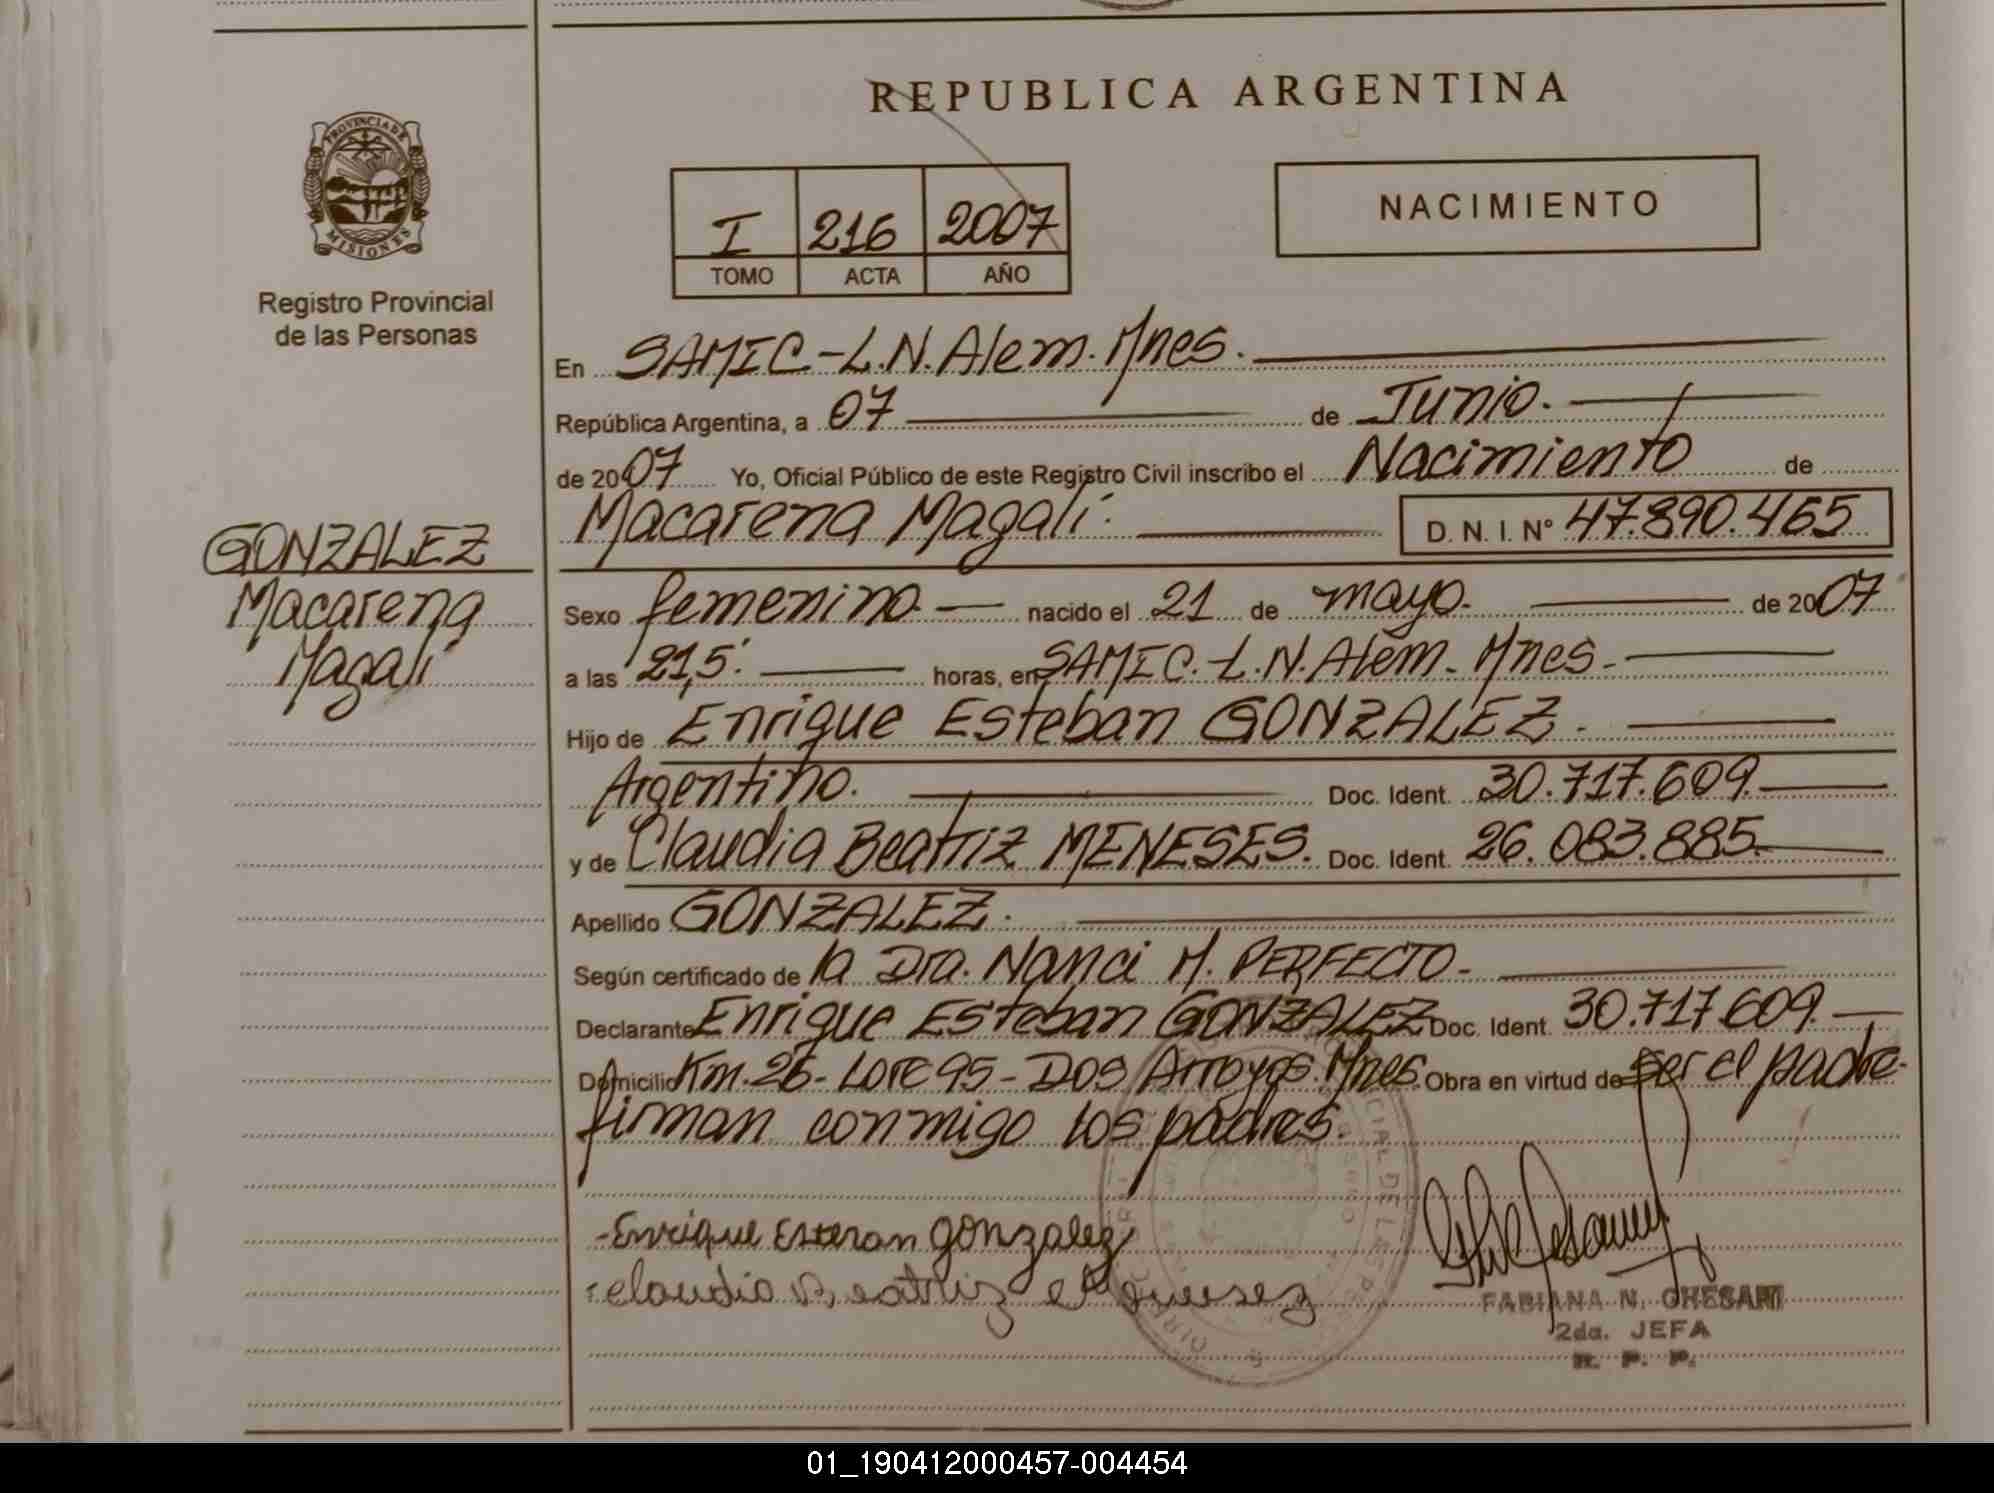 REPUBLICA ARGENTINA
PROVINCIA DE
MISIONES
Registro Provincial
de las Personas
I 216 2007
TOMO ACTA AÑO
NACIMIENTO
En SAMIC - L.N. Alem. Mnes.
República Argentina, a 07 de Junio.
de 2007 Yo, Oficial Público de este Registro Civil inscribo el Nacimiento de
Macarena Magalí. D. N. I. Nº 47.890.465
GONZALEZ
Macarena
Magalí
Sexo femenino. nacido el 21 de mayo. de 2007
a las 21,5'. horas, en SAMIC. L.N. Alem. Mnes.
Hijo de Enrique Esteban GONZALEZ.
Argentino. Doc. Ident. 30.717.609.
y de Claudia Beatriz MENESES. Doc. Ident. 26.083.885.
Apellido GONZALEZ.
Según certificado de la Dra. Nanci M. PERFECTO.
Declarante Enrique Esteban GONZALEZ Doc. Ident. 30.717.609.
Domicilio Km. 26 - Lote 95 - Dos Arroyos. Mnes. Obra en virtud de ser el padre.
firman conmigo los padres.
Enrique Esteran gonzalez
claudia Beatriz
FABIANA N. CHESANI
2da. JEFA
R. P. P.
01_190412000457-004454